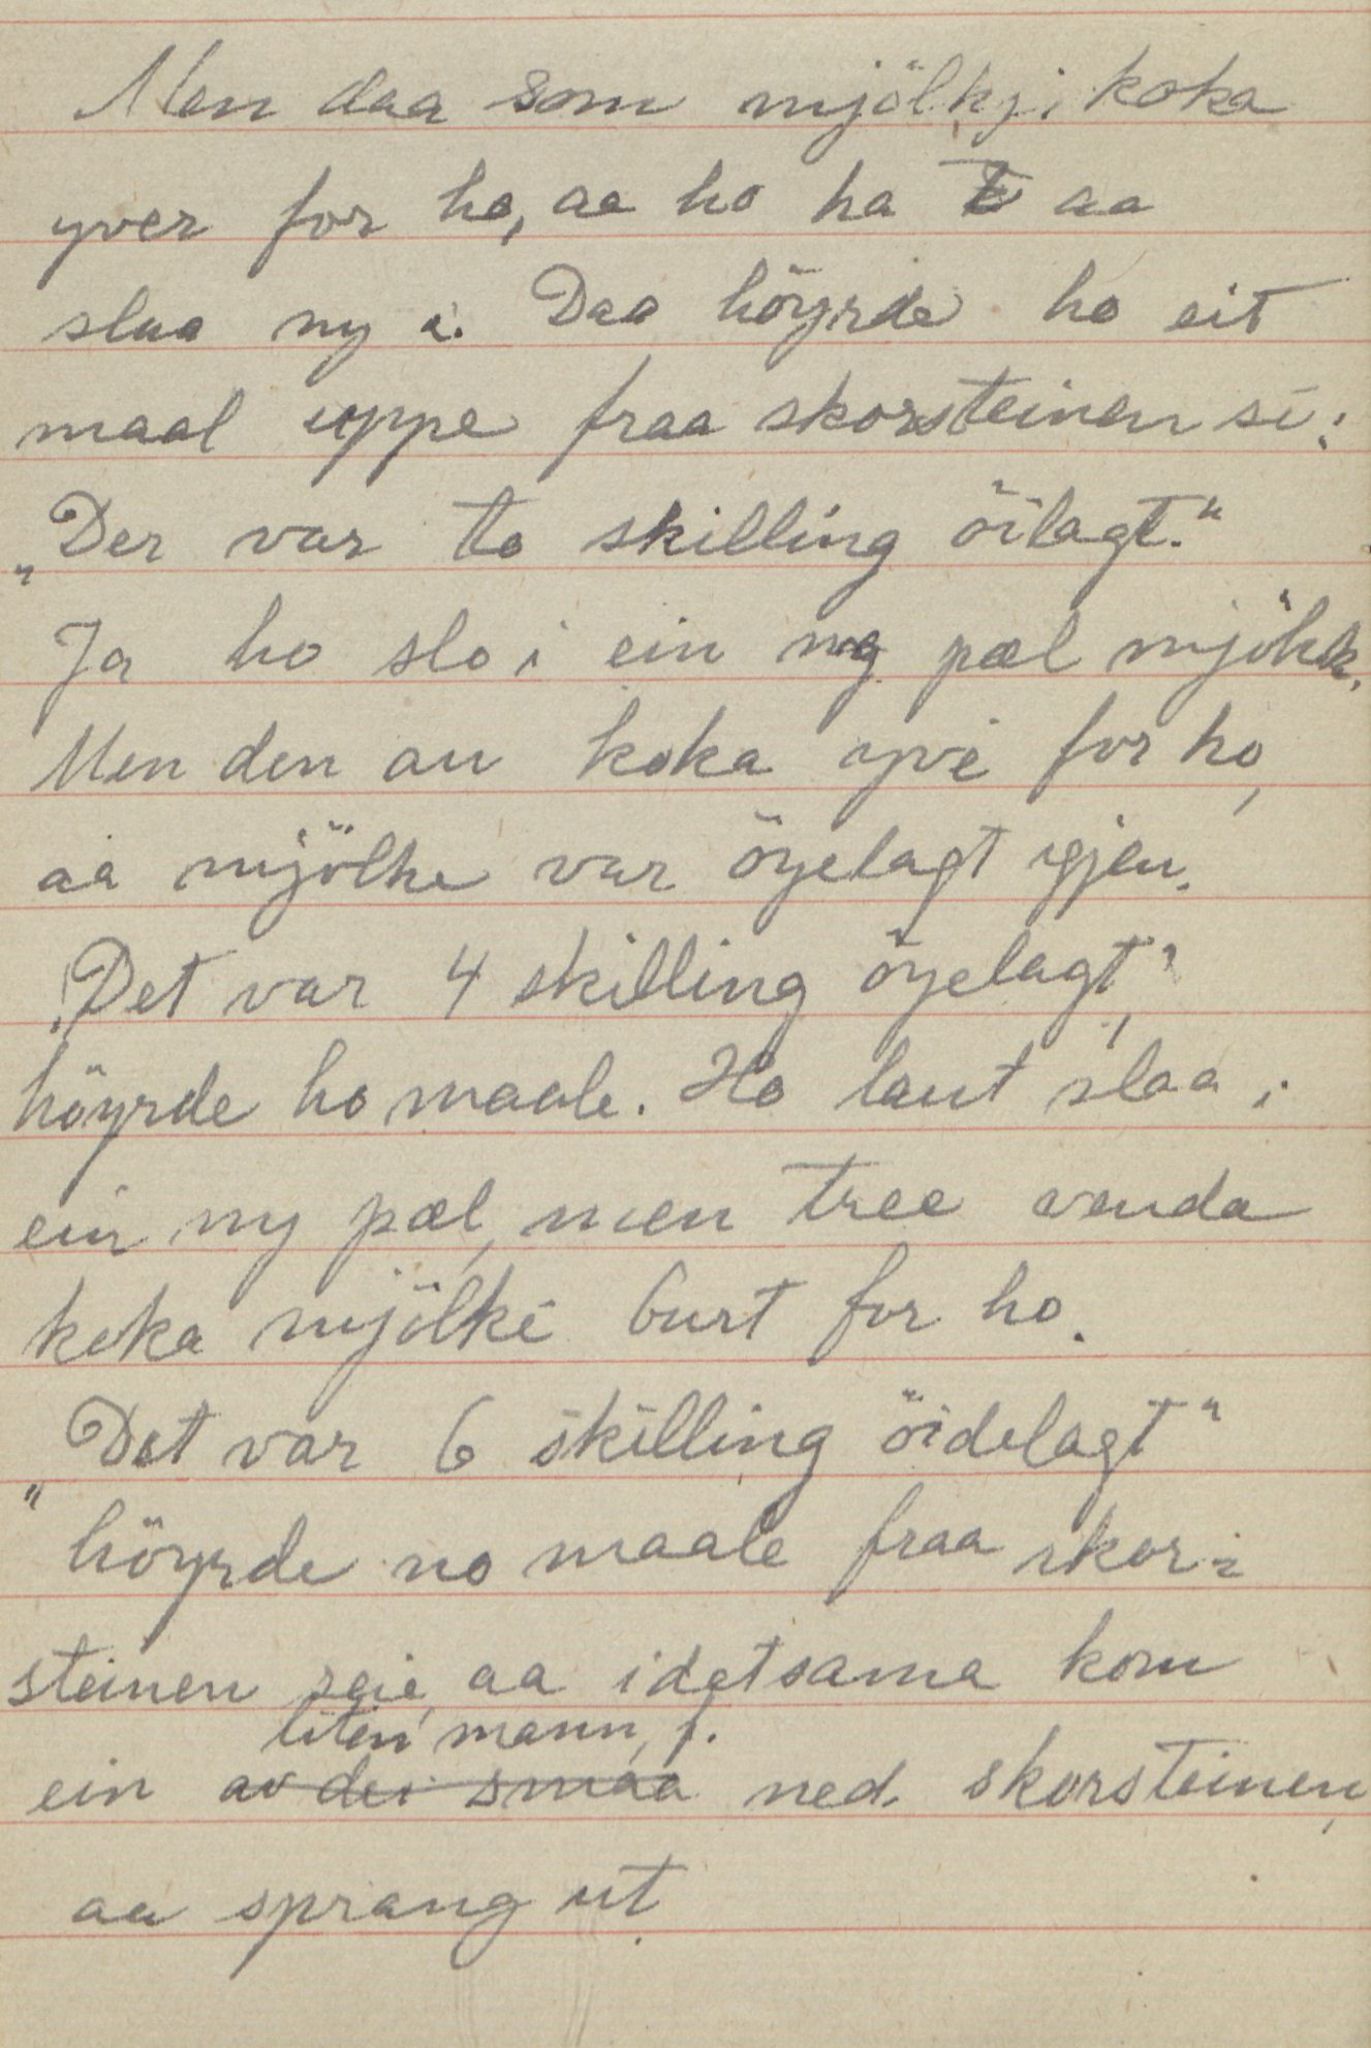 Men daa som mjölkji koka
yver for ho, aa ho ha t aa
slaa ny i. Daa höyrde ho eit
maal uppe fraa skorsteinen si:
„Der var to skilling öilagt."
Ja ho slo i ein ny pæl mjölk.
Men den au koka yve for ho,
aa mjölke var öyelagt igjen.
„Det var 4 skilling öyelagt,"
höyrde ho maale. Ho laut slaa i
ein ny pæl, men tree venda
koka mjölke burt for ho.
„Det var 6 skilling öidelagt"
höyrde no maale fraa skor-
steinen seie, aa i det sama kom
liten mann, f.
ein av dei smaa ned. skorsteinen,
aa sprang ut.